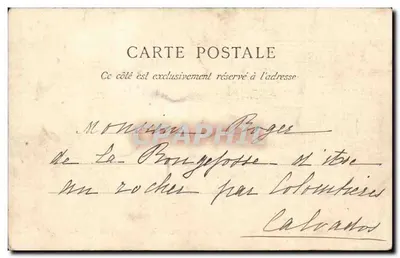 CARTE POSTALE
Ce côté est exclusivement réservé à l'adresse
Monsieur Roger
de la Rougefosse
au rocher par Colombières
Calvados